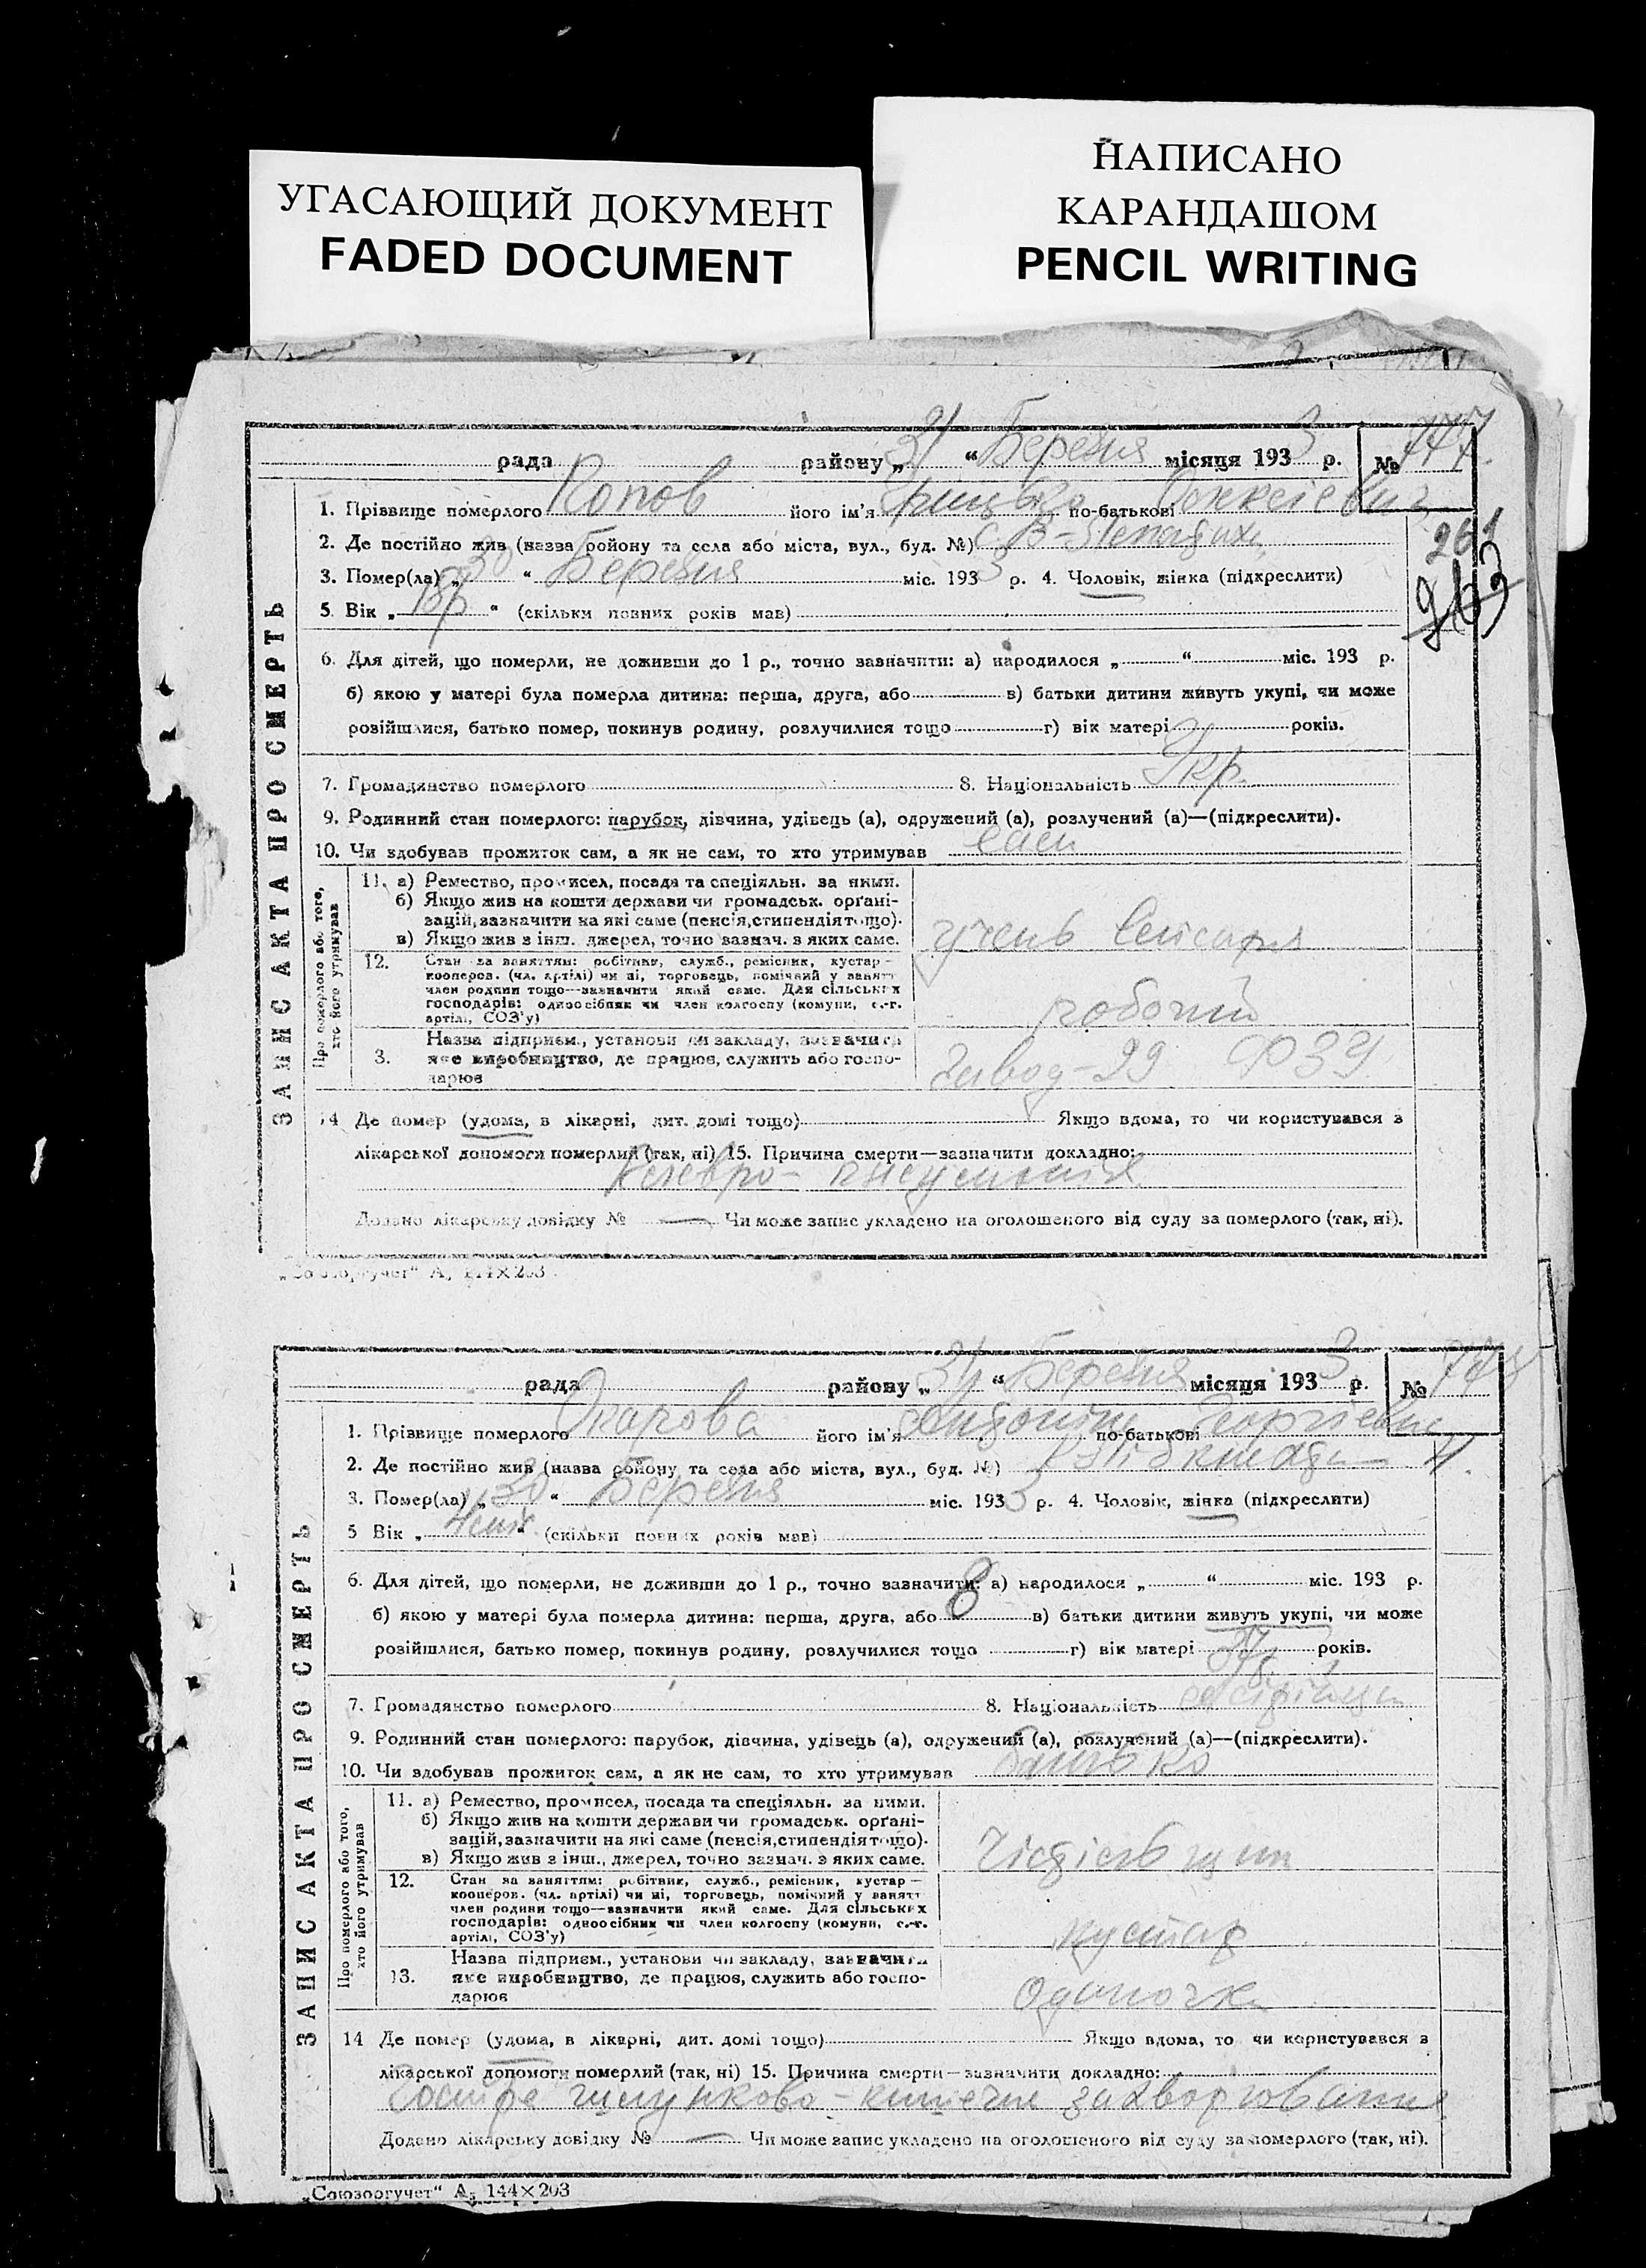 УГАСАЮЩИЙ ДОКУМЕНТ
FADED DOCUMENT
НАПИСАНО
КАРАНДАШОМ
PENCIL WRITING
рада району „31“ Березня місяця 1933 р. № 777
ЗАПИС АКТА ПРО СМЕРТЬ
1. Прізвище померлого Попов його ім'я Грицько по-батькові
2. Де постійно жив (назва району та села або міста, вул., буд. №) с. В-Лепатиха
261
263
3. Помер(ла) „30“ Березня міс. 1933 р. 4. Чоловік, жінка (підкреслити)
5 Вік „18р“ (скільки повних років мав)
6. Для дітей, що померли, не доживши до 1 р., точно зазначити: а) народилося „ “ міс. 193 р.
б) якою у матері була померла дитина: перша, друга, або в) батьки дитини живуть укупі, чи може
розійшлися, батько помер, покинув родину, розлучилися тощо г) вік матері років.
7. Громадянство померлого 8. Національність Укр.
9. Родинний стан померлого: парубок, дівчина, удівець (а), одружений (а), розлучений (а)—(підкреслити).
10. Чи здобував прожиток сам, а як не сам, то хто утримував сам
Про померлого або того, хто його утримував
11. а) Ремество, промисел, посада та спеціяльн. за ними.
б) Якщо жив на кошти держави чи громадськ. орґані-
зацій, зазначити на які саме (пенсія, стипендія тощо).
в) Якщо жив з інш. джерел, точно зазнач. з яких саме.
учень слюсаря
12. Стан за заняттям: робітник, служб., ремісник, кустар—
кооперов. (чл. артілі) чи ні, торговець, помічний у занятт
член родини тощо—зазначити який саме. Для сільських
господарів: одноосібник чи член колгоспу (комуни, с.-г.
артілі, СОЗ'у)
робочий
3. Назва підприєм., установи чи закладу, зазначити
яке виробництво, де працює, служить або госпо-
дарює
Завод-29 ФЗУ
14 Де помер (удома, в лікарні, дит. домі тощо) Якщо вдома, то чи користувався з
лікарської допомоги померлий (так, ні) 15. Причина смерти—зазначити докладно:
Плевро-пневмонія
Додано лікарську довідку № — Чи може запис укладено на оголошеного від суду за померлого (так, ні).
„Союзоргучет“ А, 144×203
рада району „31“ Березня місяця 1933 р. № 778
ЗАПИС АКТА ПРО СМЕРТЬ
1. Прізвище померлого його ім'я Антоніна по-батькові Георгіевна
2. Де постійно жив (назва району та села або міста, вул., буд. №)
3. Помер(ла) „30“ Березня міс. 1933 р. 4. Чоловік, жінка (підкреслити)
5 Вік „ “ (скільки повних років мав)
6. Для дітей, що померли, не доживши до 1 р., точно зазначити: а) народилося „ “ міс. 193 р.
б) якою у матері була померла дитина: перша, друга, або 8 в) батьки дитини живуть укупі, чи може
розійшлися, батько помер, покинув родину, розлучилися тощо г) вік матері 37 років.
7. Громадянство померлого 8. Національність
9. Родинний стан померлого: парубок, дівчина, удівець (а), одружений (а), розлучений (а)—(підкреслити).
10. Чи здобував прожиток сам, а як не сам, то хто утримував батько
Про померлого або того, хто його утримував
11. а) Ремество, промисел, посада та спеціяльн. за ними.
б) Якщо жив на кошти держави чи громадськ. орґані-
зацій, зазначити на які саме (пенсія, стипендія тощо).
в) Якщо жив з інш., джерел, точно зазнач. з яких саме.
12. Стан за заняттям: робітник, служб., ремісник, кустар—
кооперов. (чл. артілі) чи ні, торговець, помічний у занятт
член родини тощо—зазначити який саме. Для сільських
господарів: одноосібник чи член колгоспу (комуни, с.-г.
артілі, СОЗ'у)
кустар
13. Назва підприєм., установи чи закладу, зазначити
яке виробництво, де працює, служить або госпо-
дарює
одиночка
14 Де помер (удома, в лікарні, дит. домі тощо) Якщо вдома, то чи користувався з
лікарської допомоги померлий (так, ні) 15. Причина смерти—зазначити докладно:
Гостре шлунково-кишечне захворювання
Додано лікарську довідку № — Чи може запис укладено на оголошеного від суду за померлого (так, ні).
„Союзоргучет“ А, 144×203